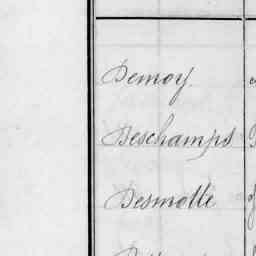 Demoy
Deschamps
Desmotte